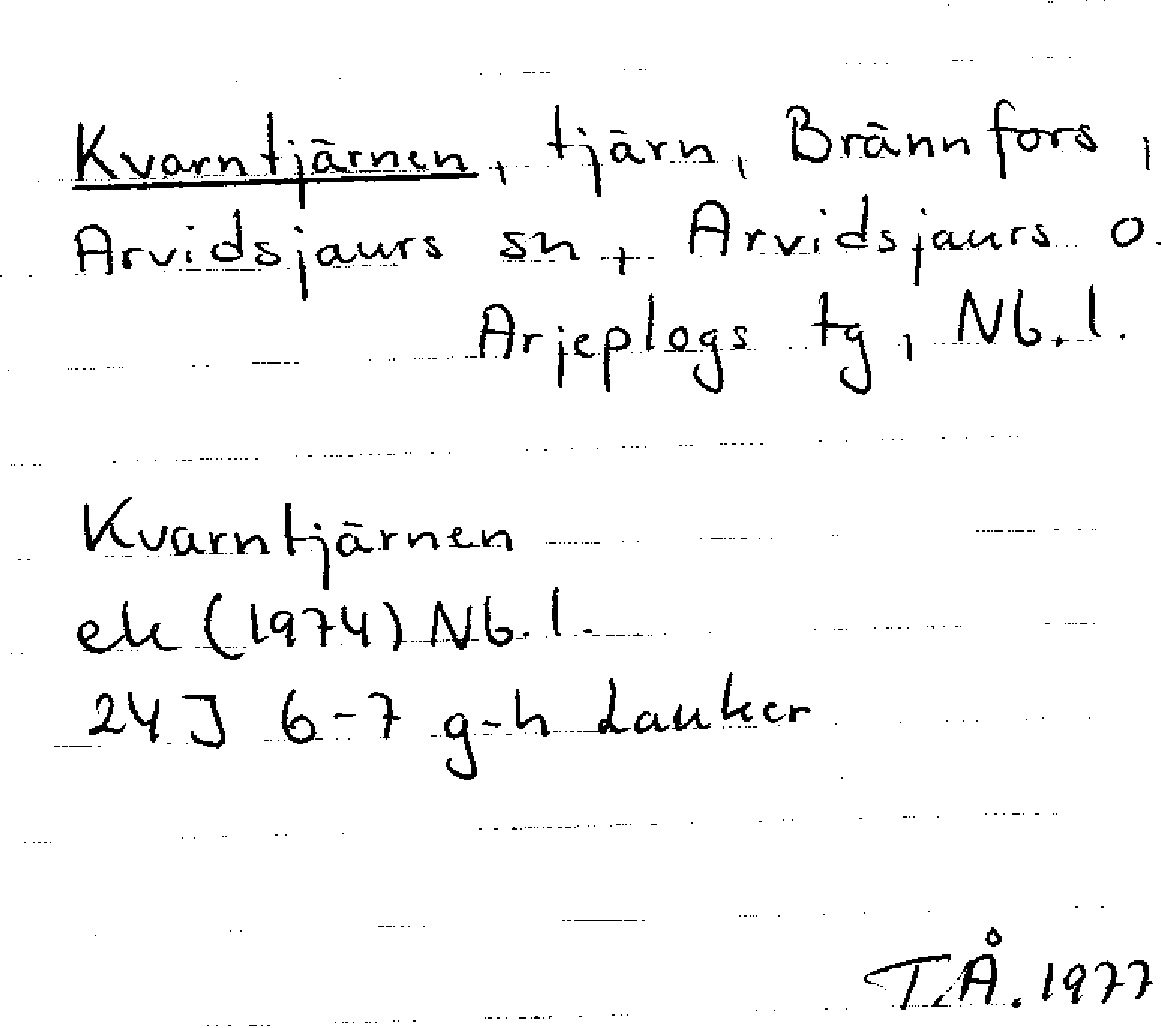 Kvarntjärnen, tjärn, Brännfors,
Arvidsjaurs sn, Arvidsjaurs o.
Arjeplogs tg, Nb.l.
Kvarntjärnen
ek (1974) Nb.l.
24 J 6-7 g-h Lauker
T.Å. 1977